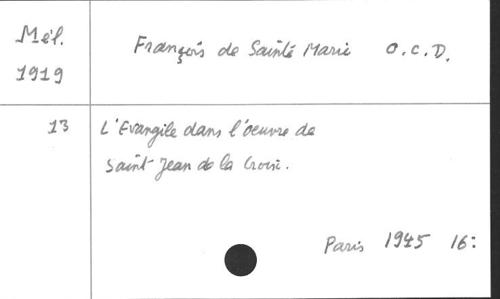 Mél.
1919
François de Sainte Marie O.C.D.
13
L'Evangile dans l'oeuvre de
Saint Jean de la Croix.
Paris 1945 16: